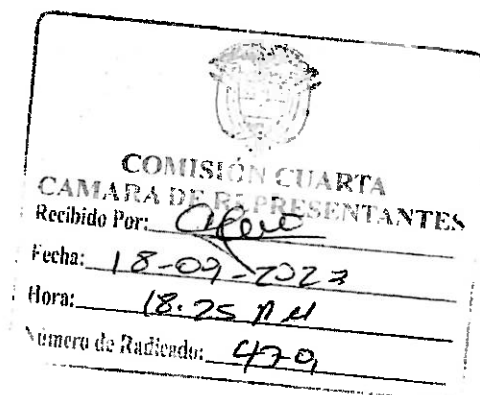 COMISIÓN CUARTA
CAMARA DE REPRESENTANTES
Recibido Por:
Fecha: 18-09-2023
Hora: 18:25
Número de Radicado: 470